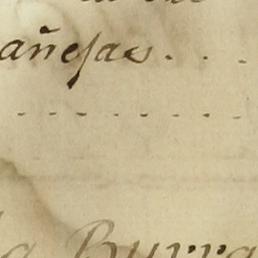 añesas. . . .
. . . . . . . . . . .
la Burra